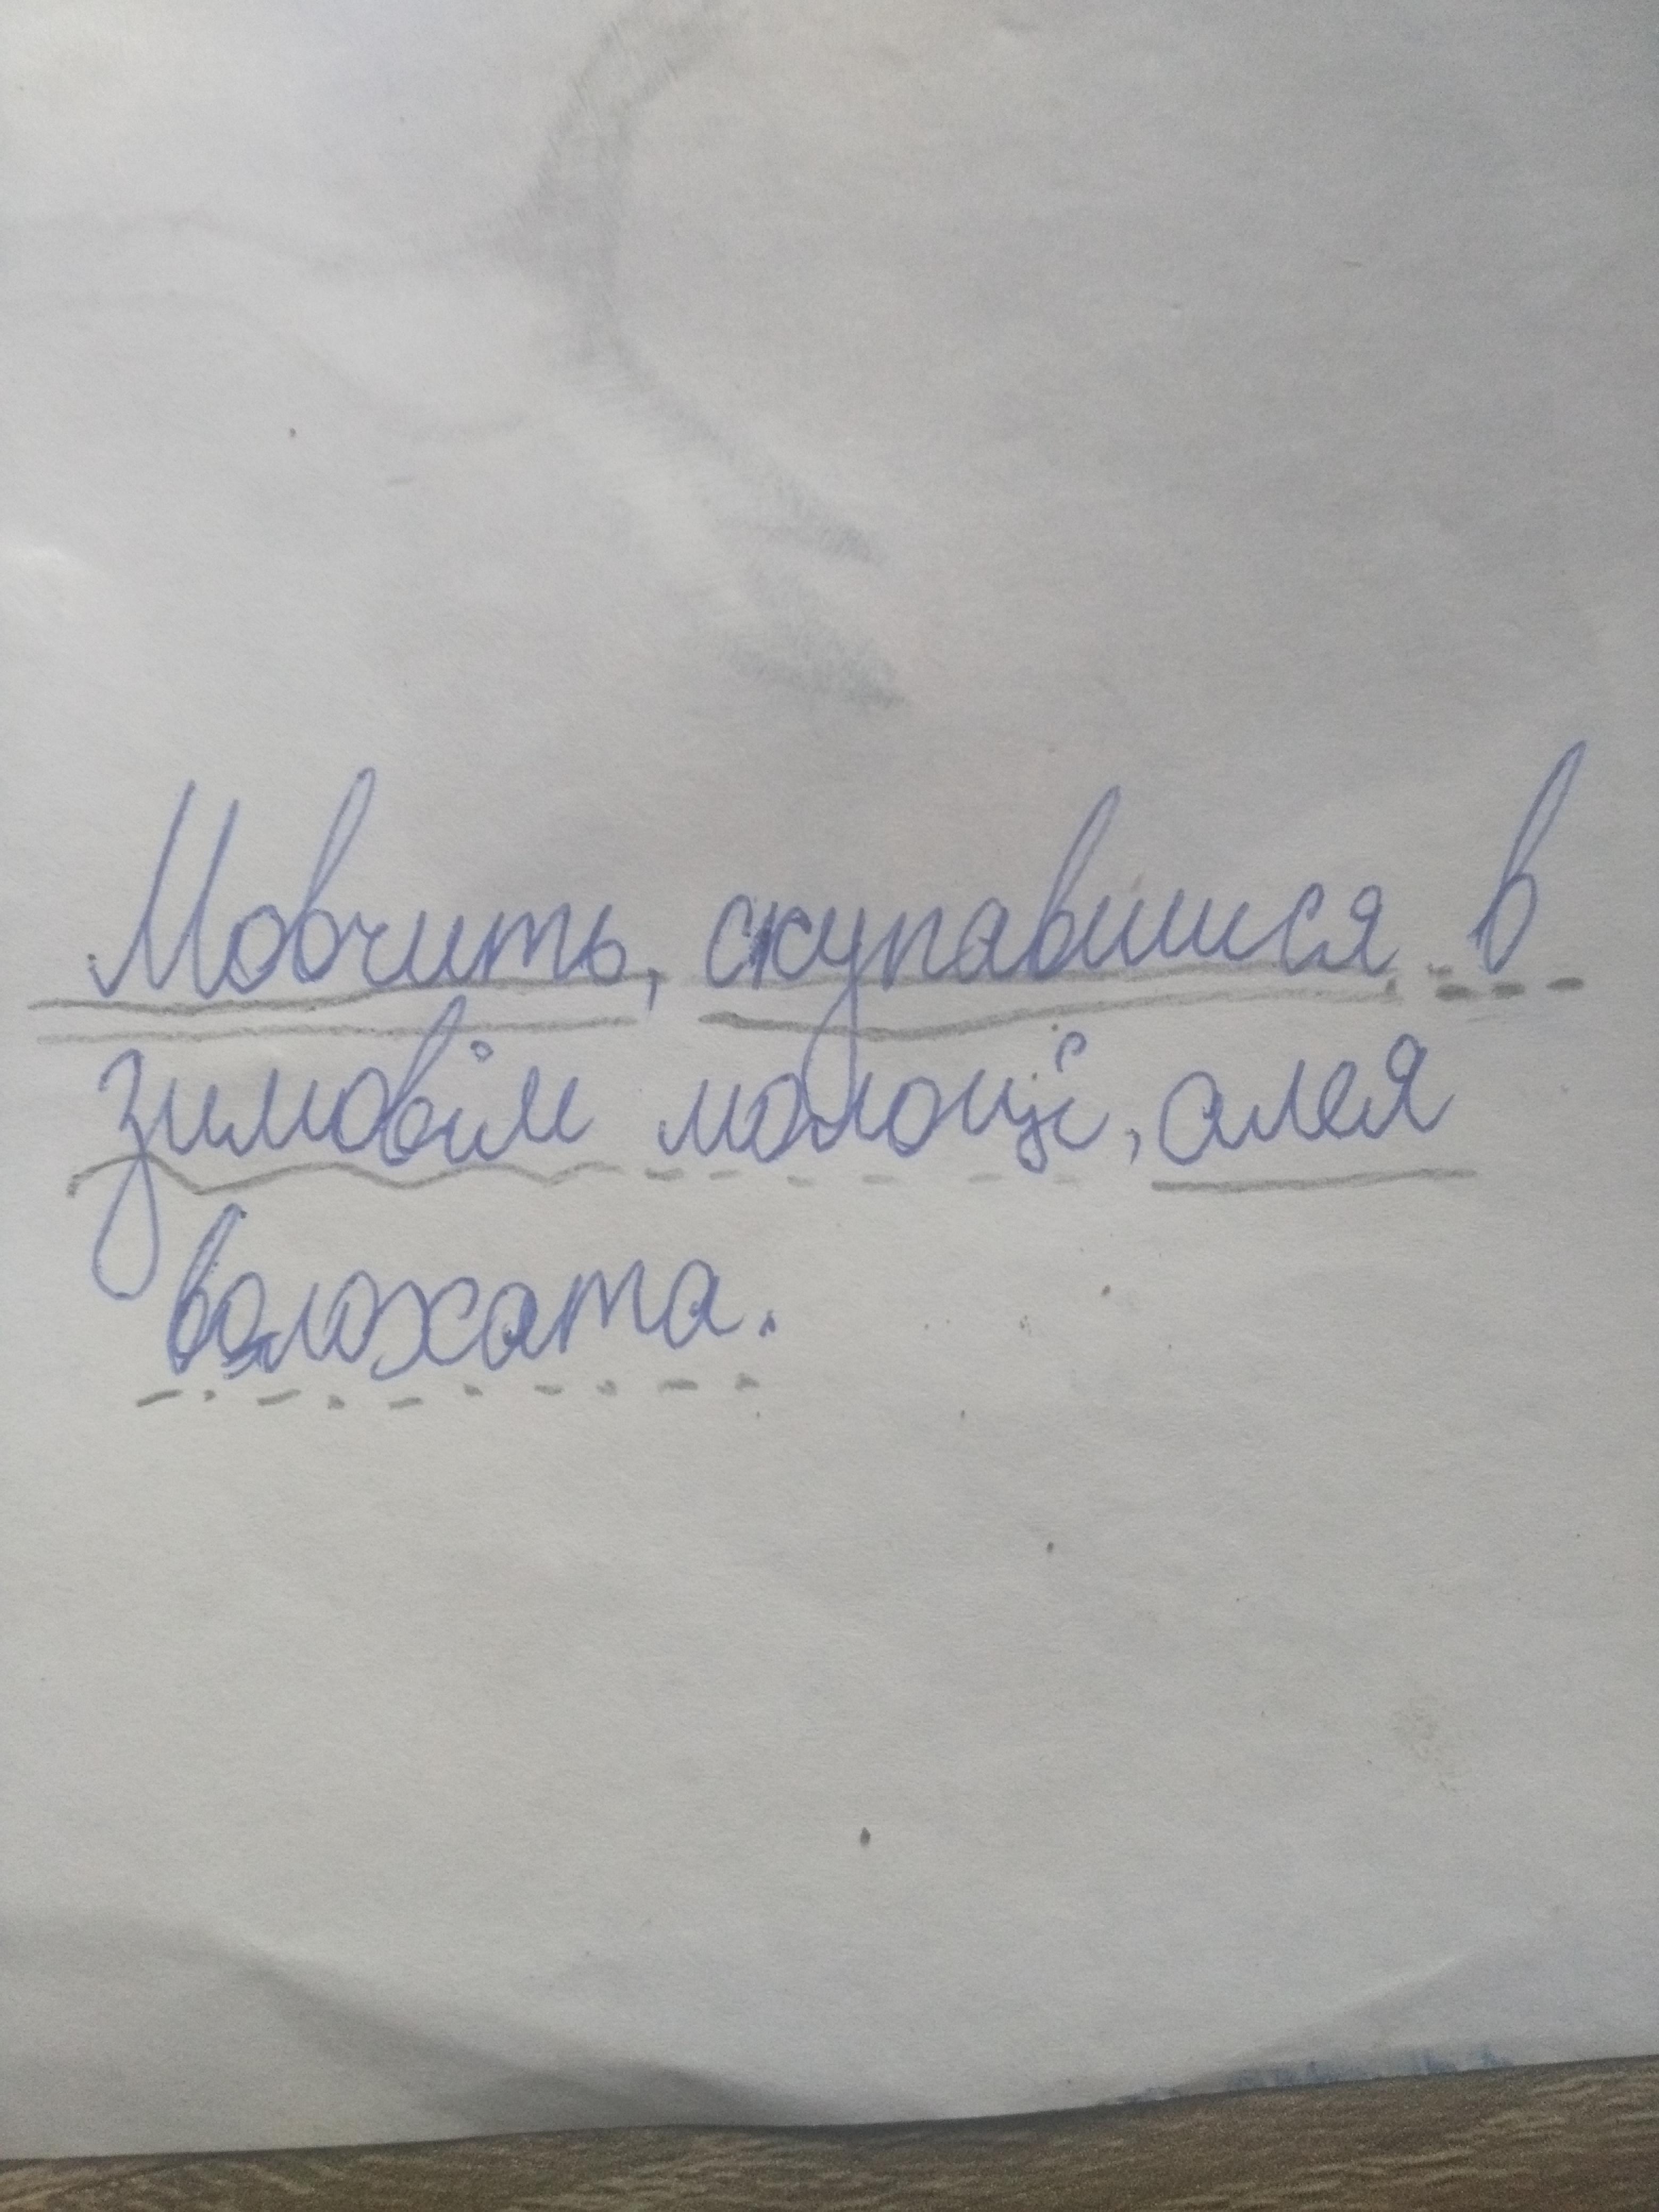 Мовчить, скупавшися в
зимовім молоці, алея
волохата.